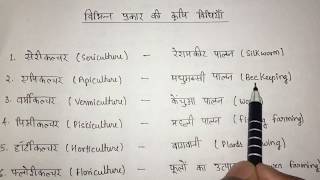 विभिन्न प्रकार की कृषि विधियाँ
1. सेरीकल्चर (Sericulture) - रेशमकीट पालन (Silkworm)
2. एपिकल्चर (Apiculture) - मधुमक्खी पालन (Bee Keeping)
3. वर्मीकल्चर (Vermiculture) - केंचुआ पालन
4. पिसीकल्चर (Pisciculture) - मछली पालन farming)
5. हॉर्टीकल्चर (Horticulture) - बागवानी (Plants
6. फ्लोरीकल्चर (Floriculture) - फूलों का farming)